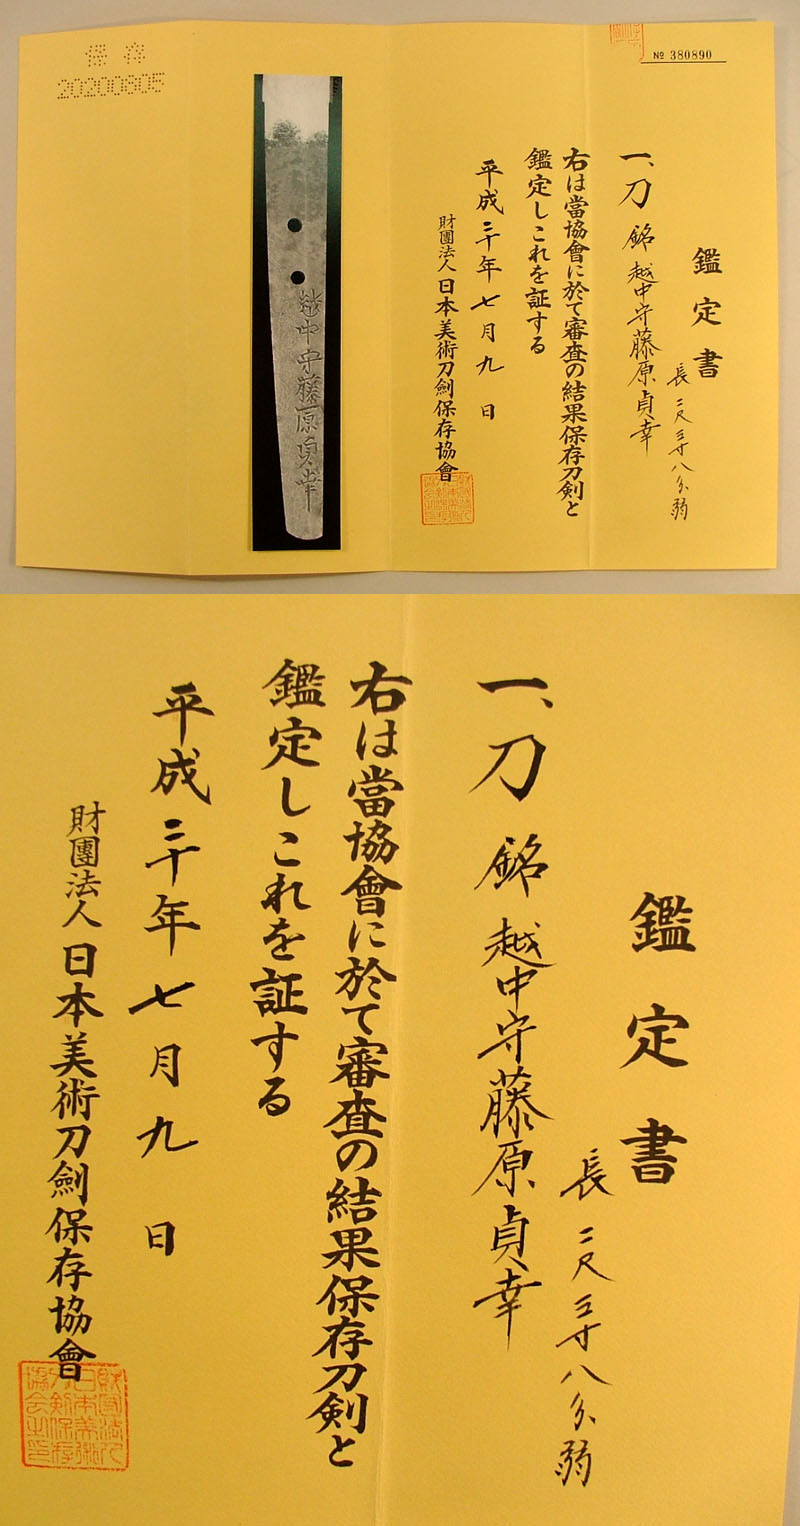 № 380890
鑑定書
長 二尺三寸八分弱
一、刀 銘 越中守藤原貞幸
右は當協會に於て審査の結果保存刀剣と
鑑定しこれを証する
平成二十年七月九日
財團法人 日本美術刀劍保存協會
財団法人
日本美術
刀剣保存
協会之印
越中守藤原貞幸
保存
鑑定書
長 二尺三寸八分弱
一、刀 銘 越中守藤原貞幸
右は當協會に於て審査の結果保存刀剣と
鑑定しこれを証する
平成二十年七月九日
財團法人 日本美術刀劍保存協會
財団法人
日本美術
刀剣保存
協会之印